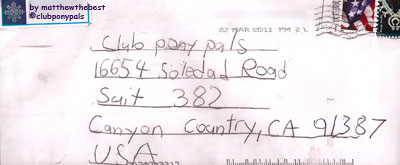 by matthewthebest
@clubponypals
22 MAR 2011 PM 2 L
Club pony pals
16654 Soledad Road
Suit 382
Canyon Country, CA 91387
USA